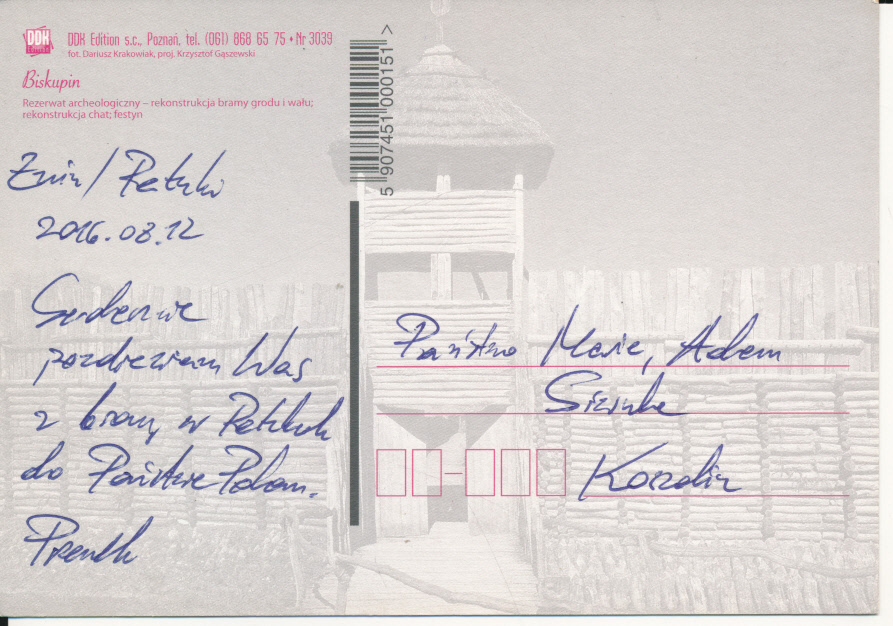 DDK
EDITION
DDK Edition s.c., Poznań, tel. (061) 868 65 75 • Nr 3039
fot. Dariusz Krakowiak, proj. Krzysztof Gąszewski
Biskupin
Rezerwat archeologiczny – rekonstrukcja bramy grodu i wału;
rekonstrukcja chat; festyn
5 907451 000151 >
Żnin / Pałuki
2016.08.12
Serdecznie
pozdrawiam Was
z bramy w Pałukach
do Państwa Polan.
Państwo Maria, Adam
Koszalin